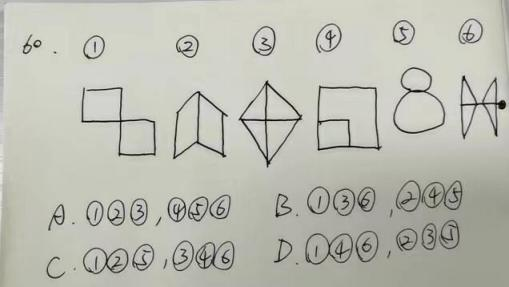 60. ① ② ③ ④ ⑤ ⑥
A. ①②③,④⑤⑥ B. ①③⑥,②④⑤
C. ①②⑤,③④⑥ D. ①④⑥,②③⑤